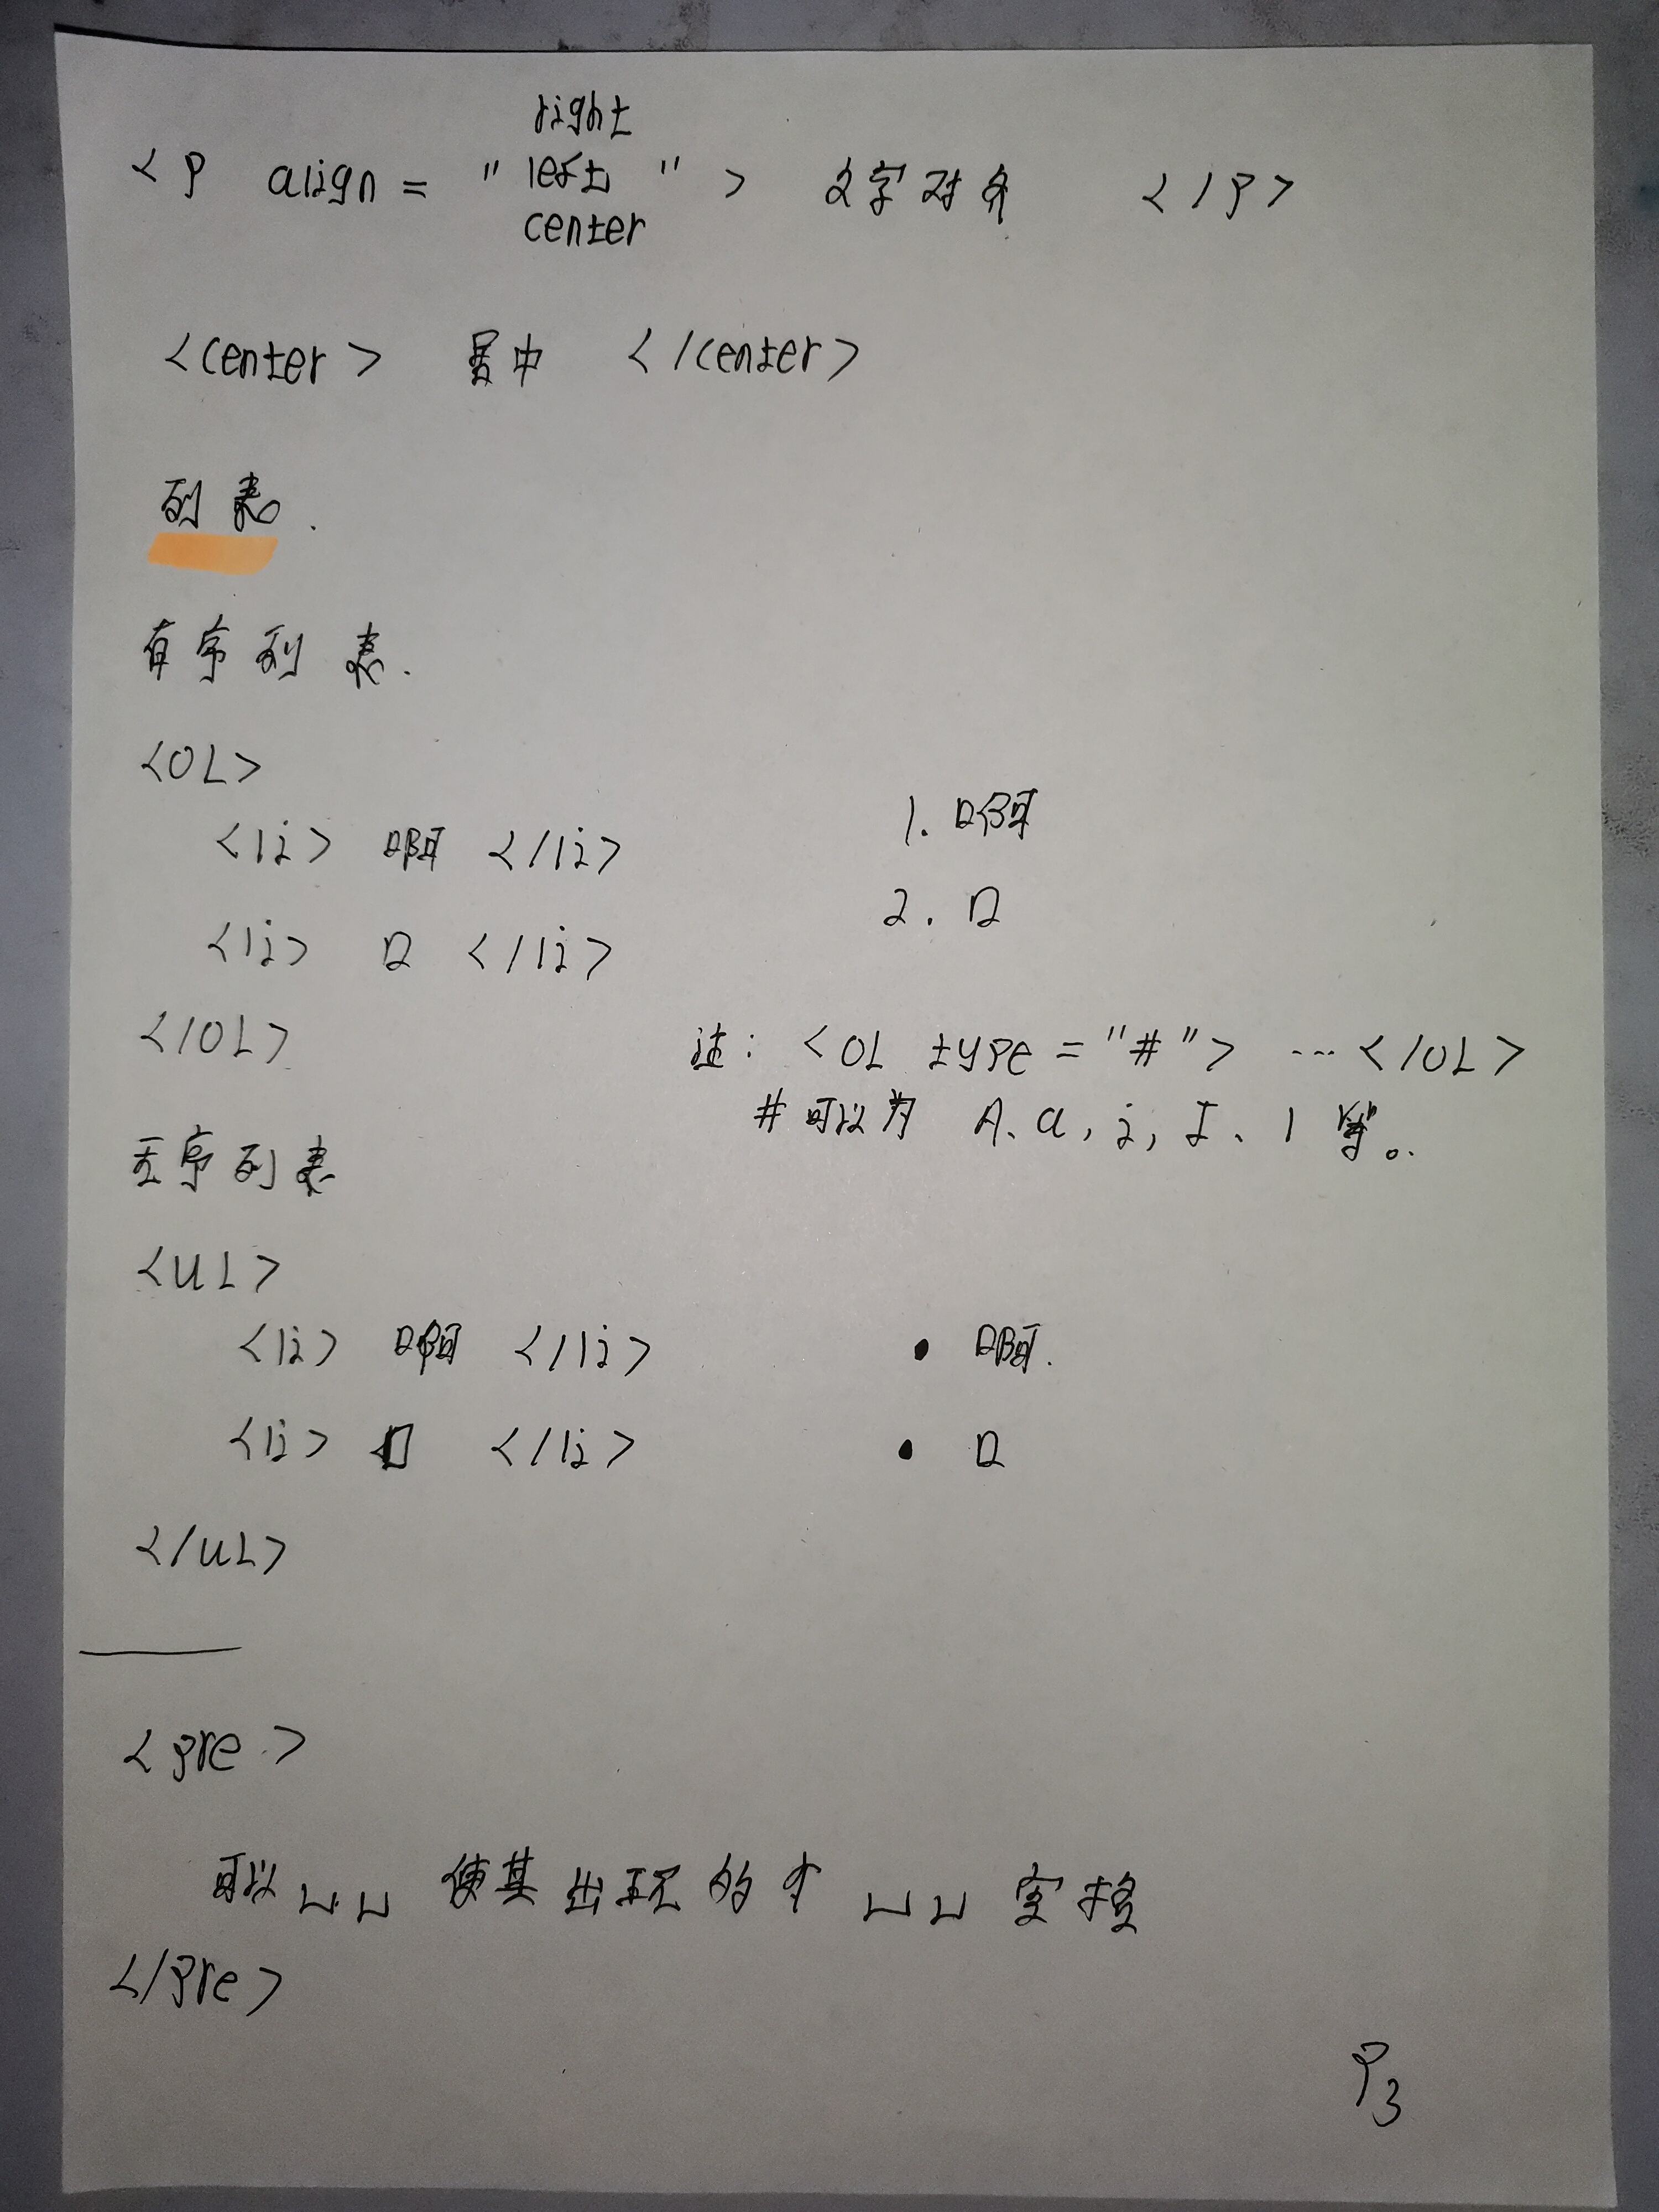 right
<p align = " left " > 文字对齐 </p>
center
<center> 居中 </center>
列表.
有序列表.
<OL>
<li> 啊 </li>
1. 啊
<li> 口 </li>
2. 口
</OL>
注: <OL type = "#"> ... </OL>
#可以为 A、a, i, I、1 等。
无序列表
<UL>
<li> 啊 </li>
• 啊.
<li> 口 </li>
• 口
</UL>
<pre>
可以␣␣使其出现的␣␣空格
</pre>
P3